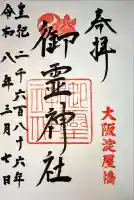 奉拝
大阪淀屋橋
御霊神社
皇紀二千六百八十六年
令和八年三月七日